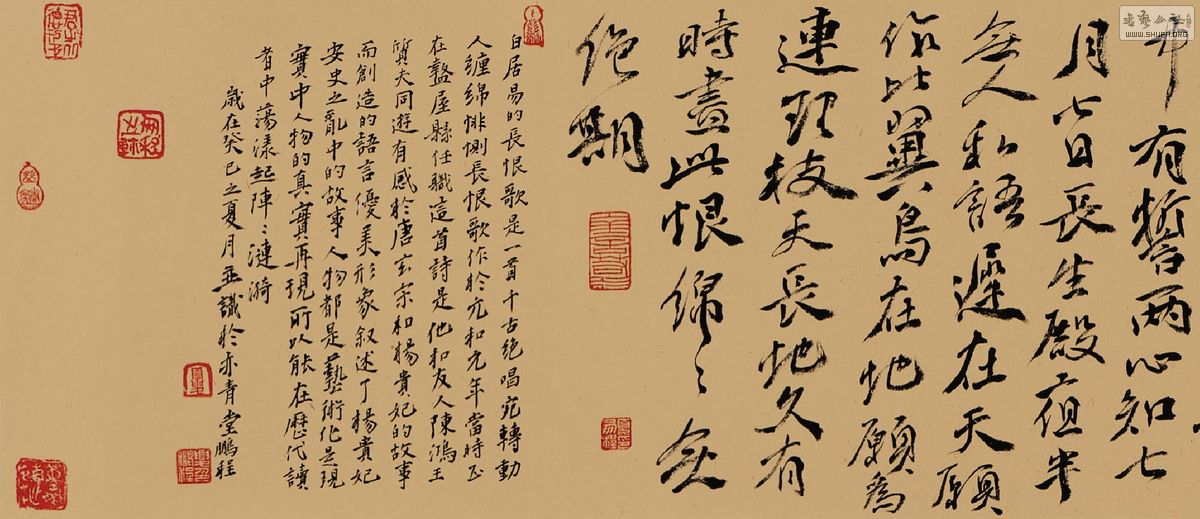 中有誓兩心知七
月七日長生殿夜半
無人私語遲在天願
作比翼鳥在地願為
連理枝天長地久有
時盡此恨綿〻無
絕期
白居易的長恨歌是一首千古絕唱宛轉動
人纏綿悱惻長恨歌作於元和元年當時正
在盩厔縣任職這首詩是他和友人陳鴻王
質夫同遊有感於唐玄宗和楊貴妃的故事
而創造的語言優美形象叙述了楊貴妃
安史之亂中的故事人物都是藝術化是現
實中人物的真實再現所以能在歷代讀
者中蕩漾起陣〻漣漪
歲在癸巳之夏月並識於亦青堂鵬程
書藝公社
WWW.SHUFA.ORG